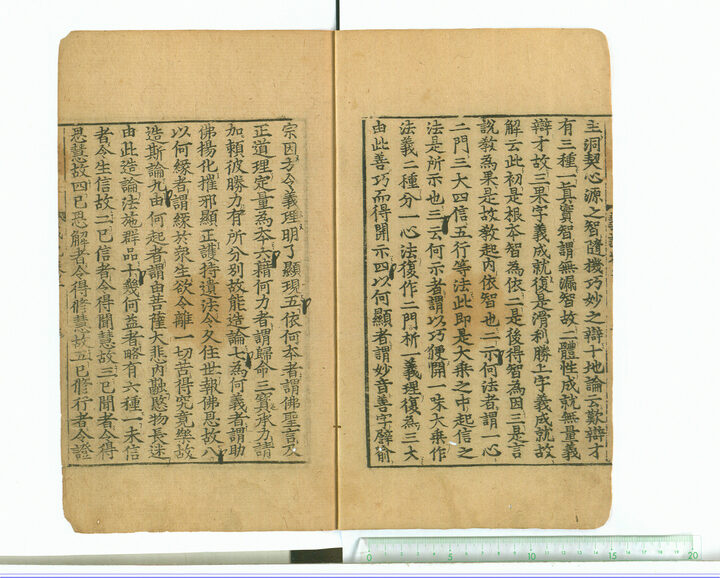 主洞契心源之智隨機巧妙之辯十地論云歎辯才
有三種一真實智謂無漏智故二體性成就無量義
辯才故三果字義成就復是滑利勝上字義成就故
解云此初是根本智為依二是後得智為因三是言
說教為果是故教起內依智也二示何法者謂一心
二門三大四信五行等法此即是大乘之中起信之
法是所示也三云何示者謂以巧便開一味大乘作
法義二種分一心法復作二門析一義理復為三大
由此善巧而得開示四以何顯者謂妙音善字譬喻
宗因方令義理明了顯現五依何本者謂佛聖言及
正道理定量為本六藉何力者謂歸命三寶承力請
加賴彼勝力有所分別故能造論七為何義者謂助
佛揚化摧邪顯正護持遺法令久住世報佛恩故八
以何緣者謂緣於衆生欲令離一切苦得究竟樂故
造斯論九由何起者謂由菩薩大悲內融愍物長迷
由此造論法施群品十幾何益者略有六種一未信
者令生信故二已信者令得聞慧故三已聞者令得
思慧故四已思解者令得修慧故五已修行者令證
0 5 10 15 20